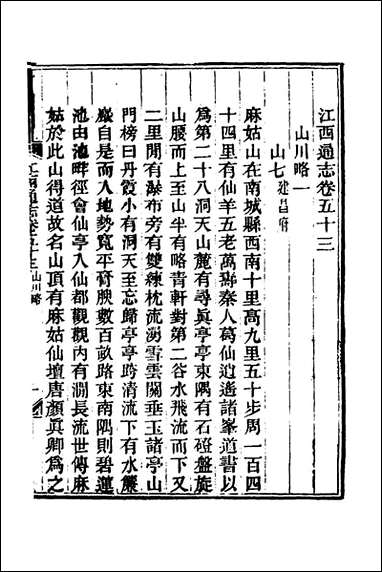 江西通志卷五十三
山川略一
山七建昌府
麻姑山在南城縣西南十里高九里五十步周一百四
十四里有仙羊五老萬壽秦人葛仙逍遙諸峯道書以
爲第二十八洞天山麓有尋眞亭亭東隅有石磴盤旋
山腰而上至山半有略青軒對第二谷水飛流而下又
二里閒有瀑布旁有雙練枕流湧雪雲關垂玉諸亭山
門榜曰丹霞小有洞天至忘歸亭亭跨清流下有水簾
巖自是而入地勢寬平膏腴數百畝路東南隅則碧蓮
池由池畔徑會仙亭入仙都觀觀內有澗長流世傳麻
姑於此山得道故名山頂有麻姑仙壇唐顏眞卿爲之
江西通志卷五十三 山川略 一